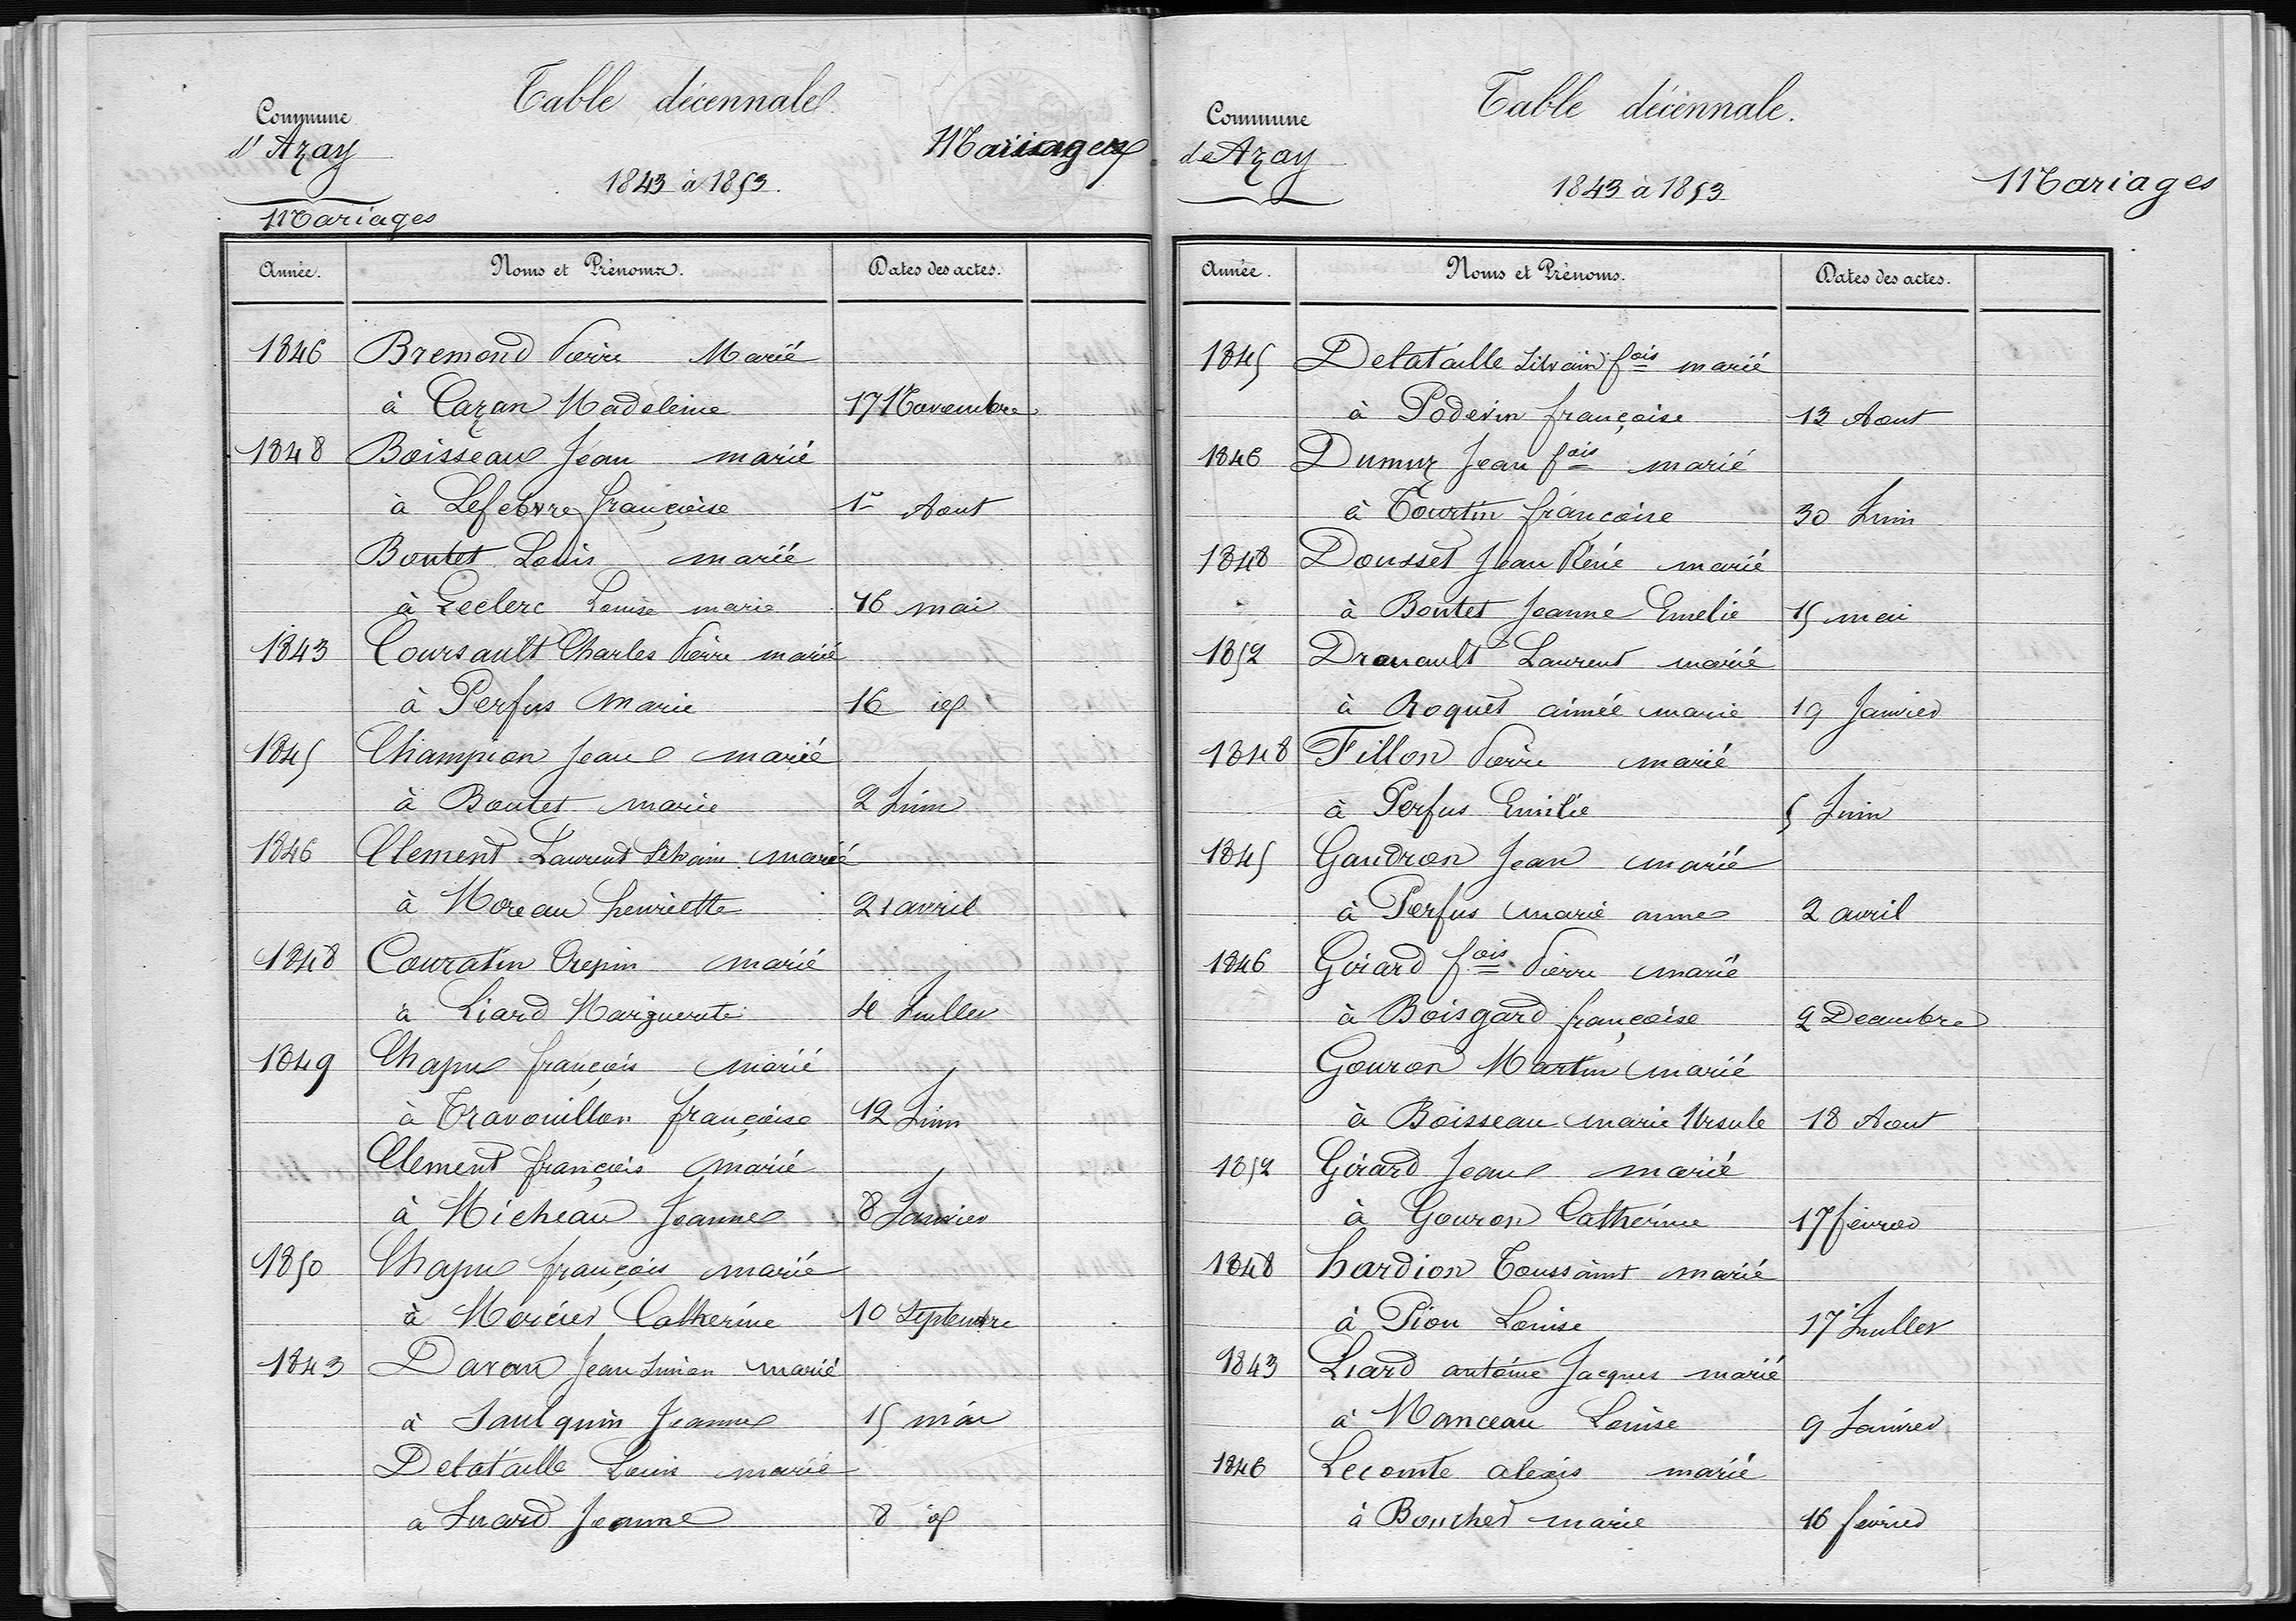 Table décennale
Commune
d'Azay
Mariages
1843 à 1853.
Mariages
Année. Noms et Prénoms. Dates des actes.
1846 Bremond Pierre Marié
à Cazan Madeleine 17 Novembre
1848 Boisseau Jean marié
à Lefebvre françoise 1er Aout
Boutet Louis marié
à Leclerc Louise marie 16 mai
1843 Coursault Charles Pierre marié
à Perfus Marie 16 id
1845 Champion Jean marié
à Boutet marie 2 Juin
1846 Clement Laurent Silvain marié
à Moreau henriette 21 avril
1848 Couratin Crepin marié
à Liard Marguerite 4 Juillet
1849 Chapu françois marié
à Travouillon françoise 12 Juin
Clement françois marié
à Micheau Jeanne 8 Janvier
1850 Chapu françois marié
à Mercier Catherine 10 Septembre
1843 Davau Jean marié
à Saulquin Jeanne 15 mai
Delataille Louis marié
a Suard Jeanne 8 id
Table décennale.
Commune
de Azay
1843 à 1853
Mariages
Année. Noms et Prénoms. Dates des actes.
1845 Delataille Silvain fois marié
à Podevin françoise 13 Aout
1846 Dumuz Jean fois marié
à Tourtin françoise 30 Juin
1848 Dousset Jean Réné marié
à Boutet Jeanne Emelie 15 mai
1852 Drouault Laurent marié
à Roquet aimée marie 19 Janvier
1848 Fillon Pierre marié
à Perfus Emilie 5 Juin
1845 Gaudron Jean marié
à Perfus marie anne 2 avril
1846 Girard fois Pierre marié
à Boisgard françoise 2 Decembre
Gouron Martin marié
à Boisseau marie Ursule 18 Aout
1852 Girard Jean marié
à Gouron Catherine 17 fevrier
1848 hardion Toussaint marié
à Pion Louise 17 Juillet
1843 Liard antoine Jacques marié
à Manceau Louise 9 Janvier
1846 Lecomte alexis marié
à Boucher marie 16 fevrier